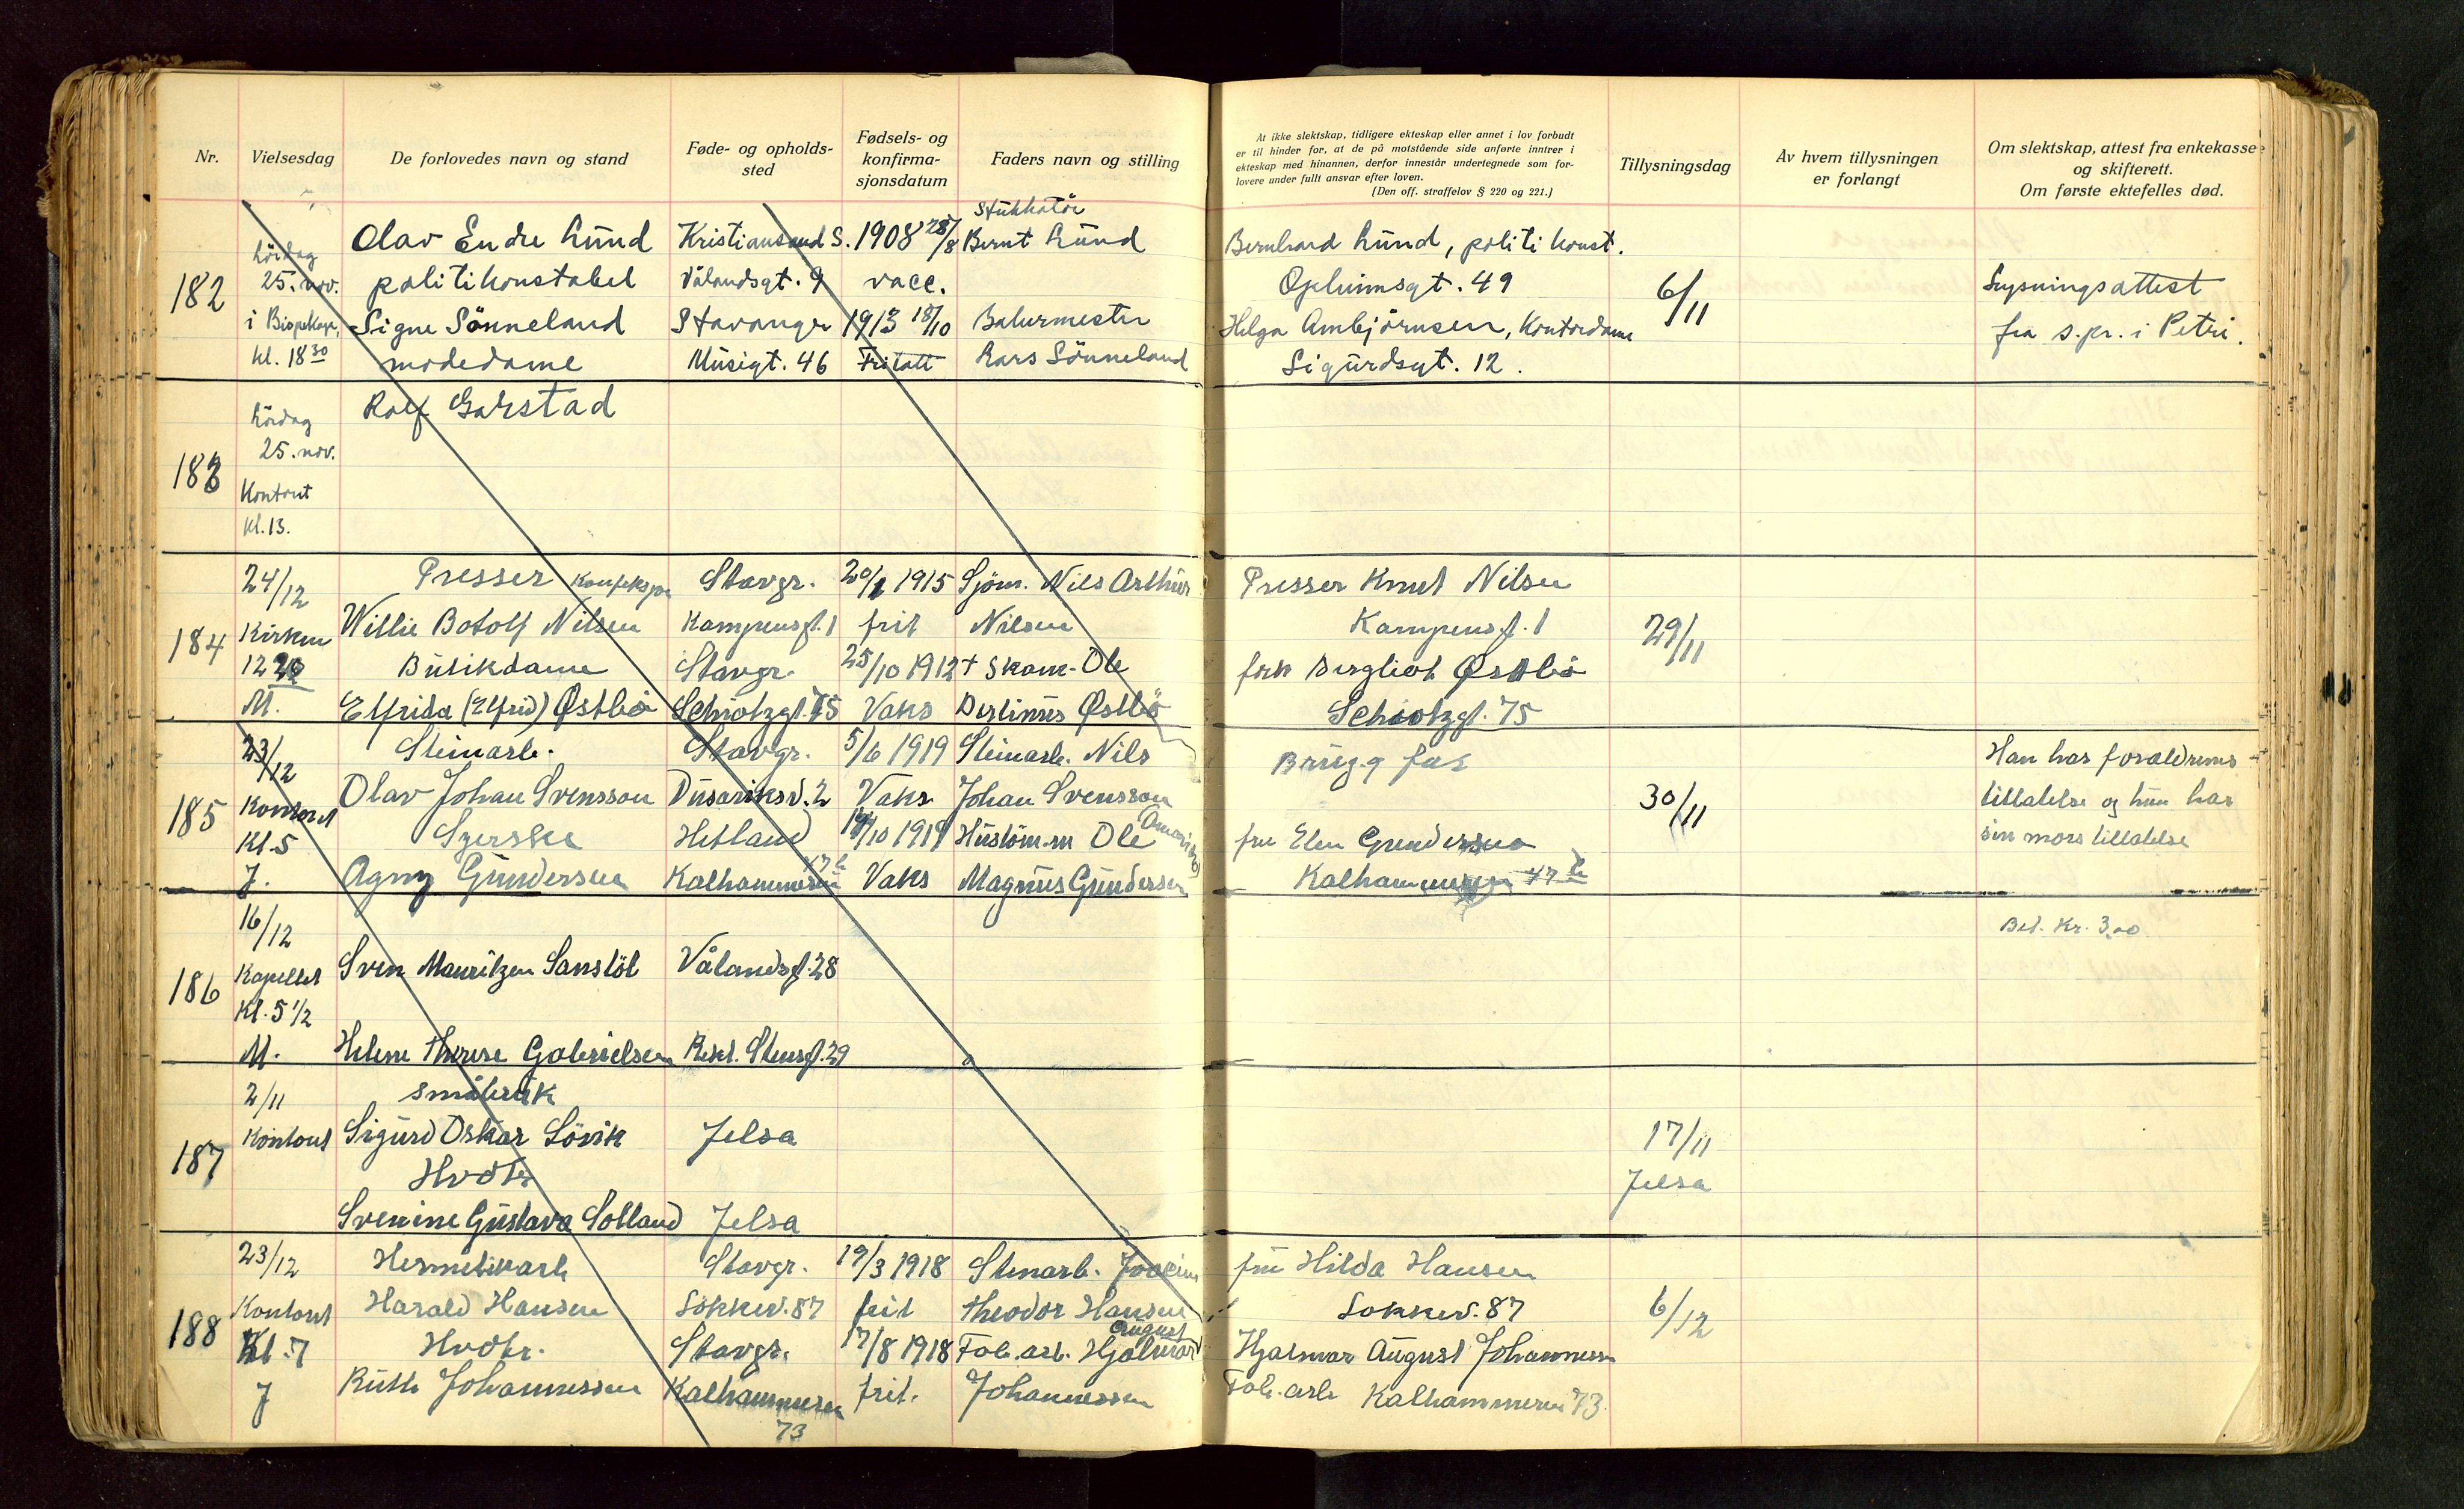 Nr.
Vielsesdag
De forlovedes navn og stand
Føde- og opholds-
sted
Fødsels- og
konfirma-
sjonsdatum
Faders navn og stilling
At ikke slektskap, tidligere ekteskap eller annet i lov forbudt
er til hinder for, at de på motstående side anførte inntrer i
ekteskap med hinannen, derfor innestår undertegnede som for-
lovere under fullt ansvar efter loven.
(Den off. straffelov § 220 og 221.)
Tillysningsdag
Av hvem tillysningen
er forlangt
Om slektskap, attest fra enkekasse
og skifterett.
Om første ektefelles død.
182
lördag
25. nov.
i Bispekap.
kl. 18 30
Olav Endre Lund
politikonstabel
Signe Sönneland
modedame
Kristiansand S.
Vålandsgt. 9
Stavanger
Musègt. 46
1908 28/8
vacc.
1913 18/10
Fritatt
Stukkatör
Bernt Lund
Bakermester
Lars Sönneland
Bernhard Lund, politikonst.
Opheimsgt. 49
Helga Ambjörnsen, Kontordame
Sigurdsgt. 12.
6/11
Lysningsattest
fra s.pr. i Petri.
183
Lördag
25. nov.
Kontoret
kl. 13.
Rolf Garstad
184
24/12
Kirken
12 20
M.
Presser
Willie Botolf Nilsen
Butikdame
Elfrida (Elfrid) Østbö
Stavgr.
Kampensgt. 1
Stavgr.
Schiötzgt. 75
20/1 1915
frit
25/10 1912
Vaks
Sjöm. Nils Arthur
Nilsen
+ Skom. Ole
Bertinius Østbö
Presser Knut Nilsen
Kampensgt. 1
frk Bergliot Østbö
Schiötzgt. 75
29/11
185
23/12
Kontoret
Kl. 5
J.
Steinarb.
Olav Johan Svensson
Syerske
Agny Gundersen
Stavgr.
Dusaviksv. 2
Hetland
Kalhammeren 47 b
5/6 1919
Vaks
14/10 1919
Vaks
Steinarb. Nils
Johan Svensson
Hustöm.m Ole
Magnus Gundersen
Brugg
fru Elen Gundersen
Kalhammeren 47 b
30/11
Han har forældrenes
tillatelse og hun har
sin mors tillatelse
186
16/12
Kapellet
Kl. 5 1/2
M.
Sven Mauritzen Sanstöl
Helene Therese Gabrielsen
Vålandsgt. 28
Rekt. Stensgt. 29
Bet. Kr. 3,00
187
2/11
Kontoret
småbruk
Sigurd Oskar Lövik
Hvdtr
Svenine Gustava Solland
Jelsa
Jelsa
17/11
Jelsa
188
23/12
Kontoret
Kl. 7
J
Hermetikkarb
Harald Hansen
Hvdtr.
Ruth Johannessen
Stavgr.
Lokkev. 87
Stavgr.
Kalhammeren
73
19/3 1918
frit
17/8 1918
frit.
Stenarb. Joacim
Theodor Hansen
August
Fab. arb. Hjalmar
Johannessen
fru Hilda Hansen
Lokkev. 87
Hjalmar August Johannessen
Fab. arb Kalhammeren 73
6/12